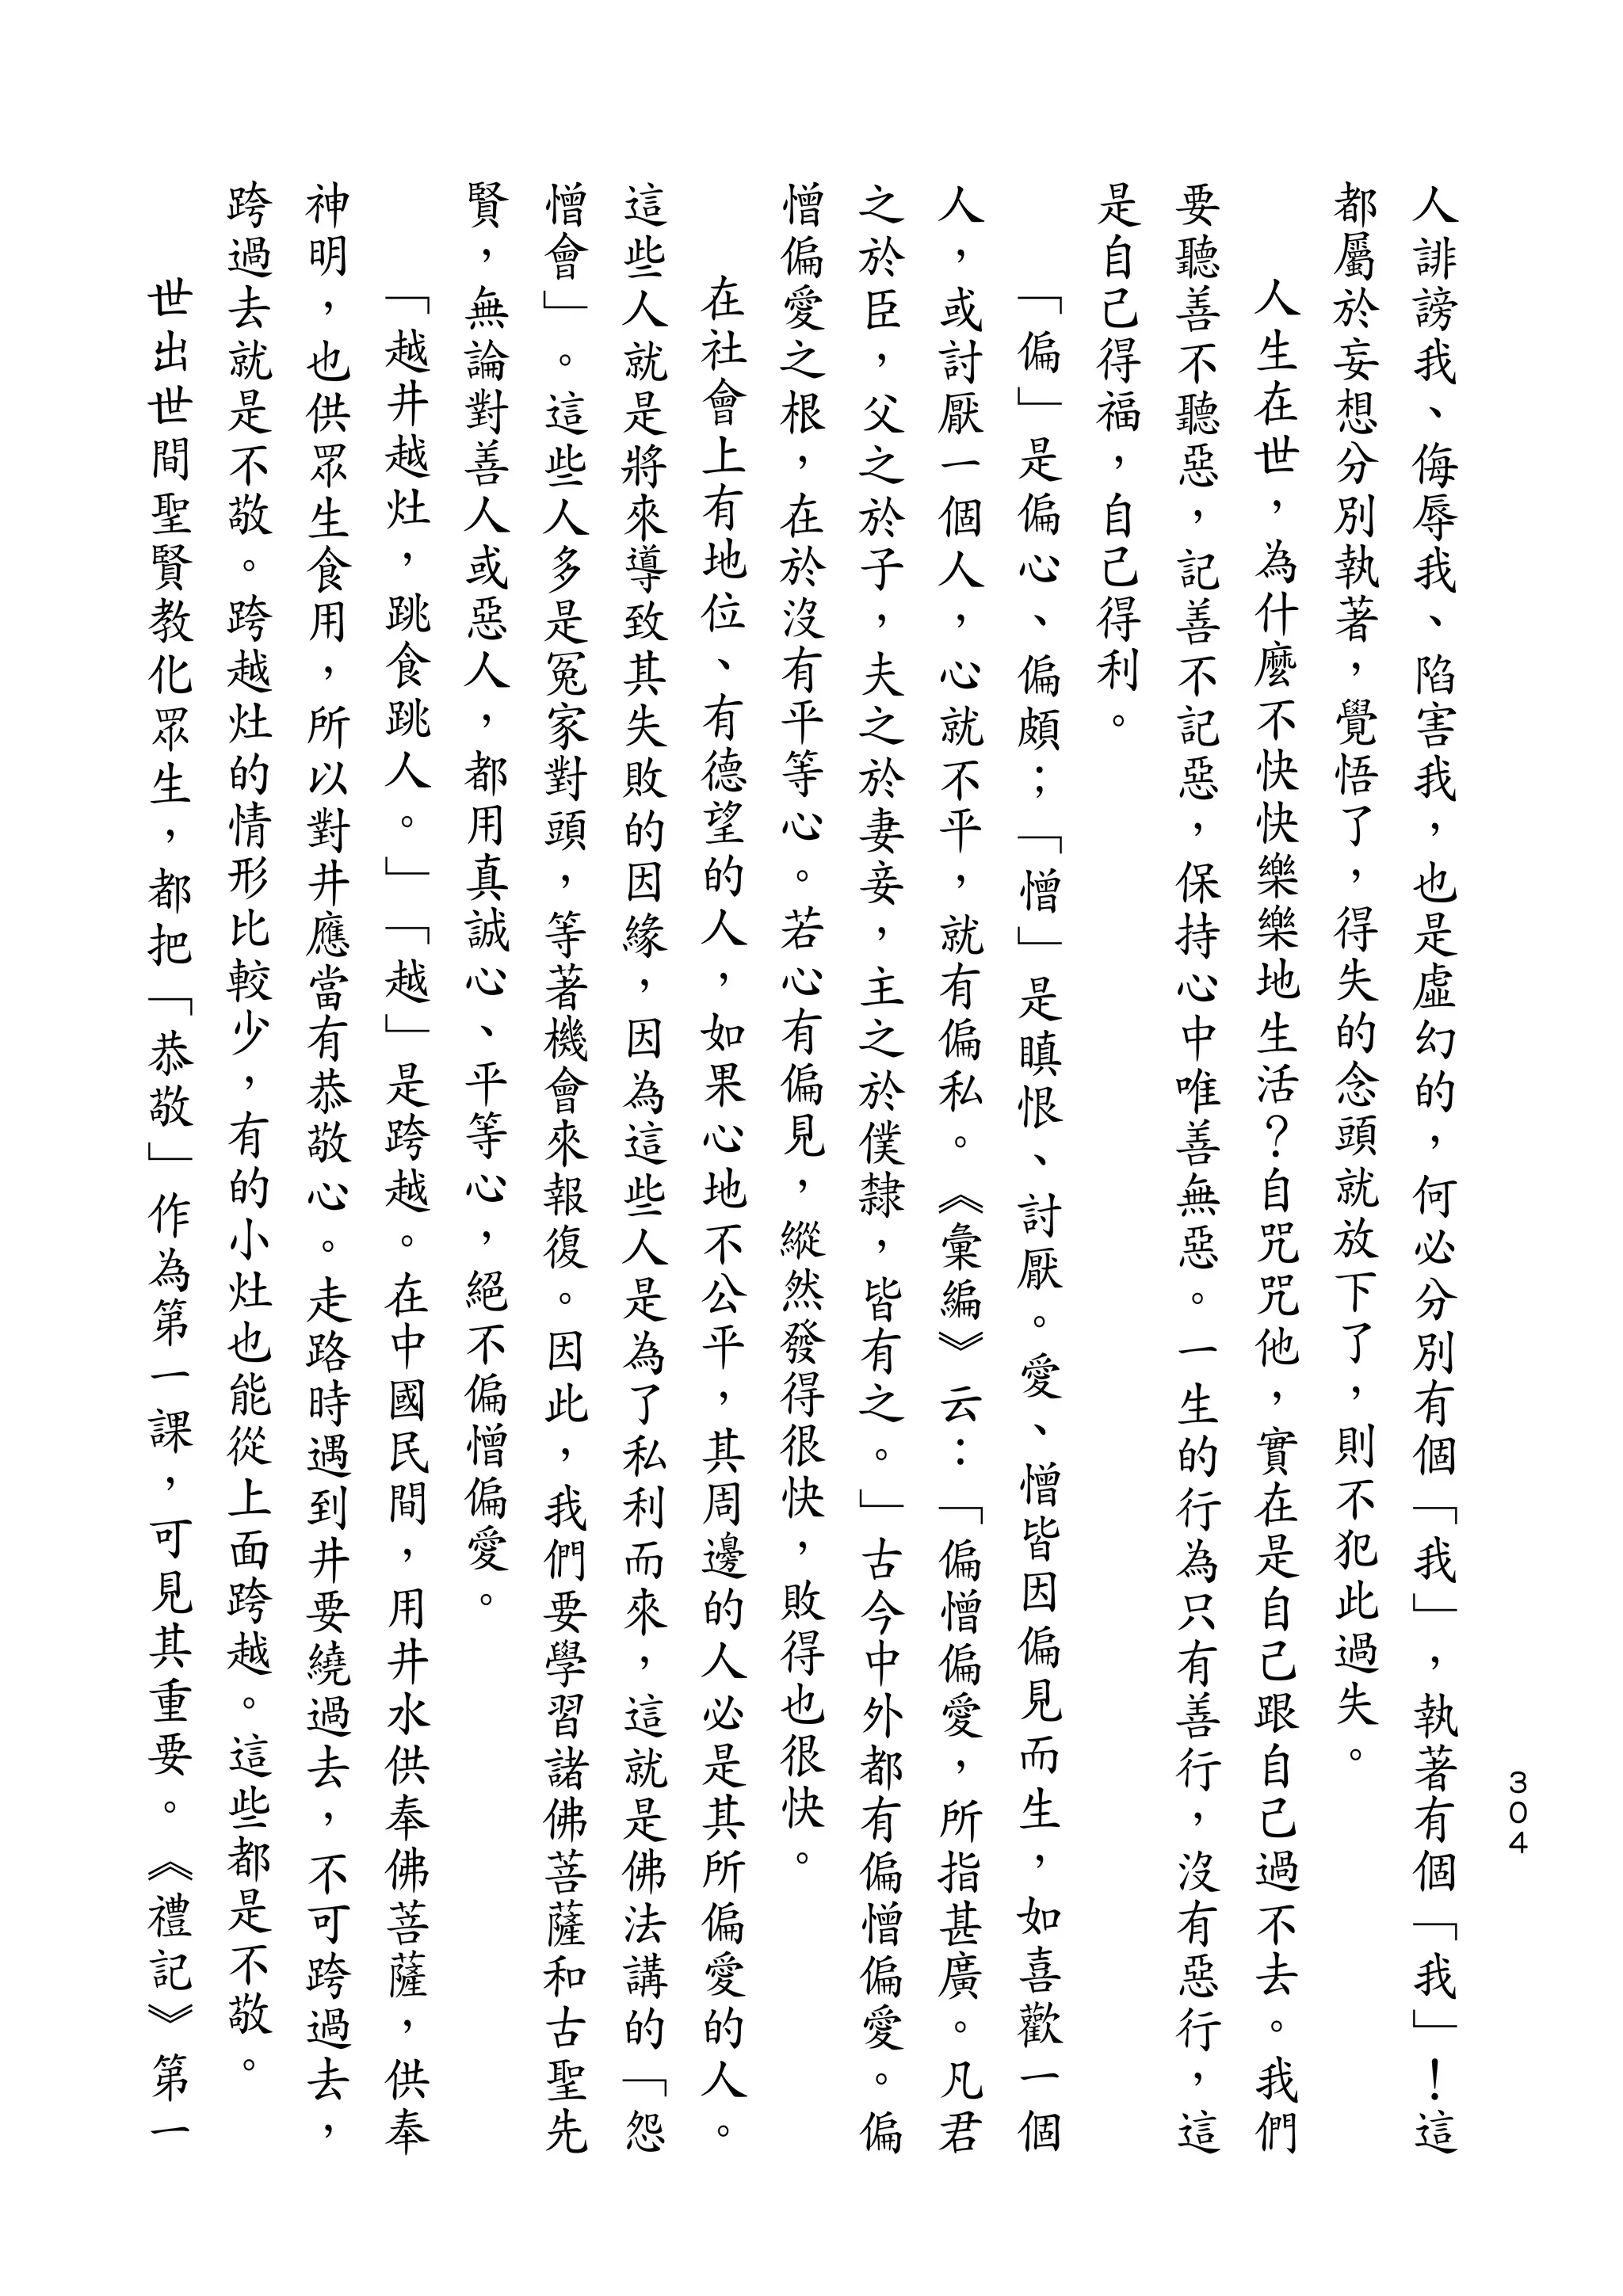 304
人誹謗我、侮辱我、陷害我，也是虛幻的，何必分別有個「我」，執著有個「我」！這
都屬於妄想分別執著，覺悟了，得失的念頭就放下了，則不犯此過失。
人生在世，為什麼不快快樂樂地生活？自咒咒他，實在是自己跟自己過不去。我們
要聽善不聽惡，記善不記惡，保持心中唯善無惡。一生的行為只有善行，沒有惡行，這
是自己得福，自己得利。
「偏」是偏心、偏頗；「憎」是瞋恨、討厭。愛、憎皆因偏見而生，如喜歡一個
人，或討厭一個人，心就不平，就有偏私。《彙編》云：「偏憎偏愛，所指甚廣。凡君
之於臣，父之於子，夫之於妻妾，主之於僕隸，皆有之。」古今中外都有偏憎偏愛。偏
憎偏愛之根，在於沒有平等心。若心有偏見，縱然發得很快，敗得也很快。
在社會上有地位、有德望的人，如果心地不公平，其周邊的人必是其所偏愛的人。
這些人就是將來導致其失敗的因緣，因為這些人是為了私利而來，這就是佛法講的「怨
憎會」。這些人多是冤家對頭，等著機會來報復。因此，我們要學習諸佛菩薩和古聖先
賢，無論對善人或惡人，都用真誠心、平等心，絕不偏憎偏愛。
「越井越灶，跳食跳人。」「越」是跨越。在中國民間，用井水供奉佛菩薩，供奉
神明，也供眾生食用，所以對井應當有恭敬心。走路時遇到井要繞過去，不可跨過去，
跨過去就是不敬。跨越灶的情形比較少，有的小灶也能從上面跨越。這些都是不敬。
世出世間聖賢教化眾生，都把「恭敬」作為第一課，可見其重要。《禮記》第一